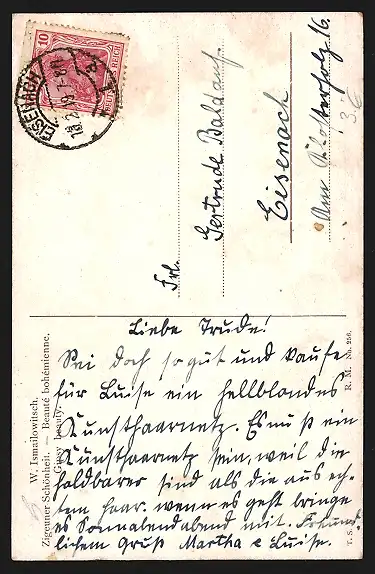 EISENACH
18.2.19. 7-8N
10
DEUTSCHES REICH
Frl.
Gertrude Baldauf.
Eisenach
Am Klosterholz 16.
Liebe Trude!
Sei doch so gut und kaufe
für Luise ein hellblondes
Kunsthaarnetz. Es muß ein
Kunsthaarnetz sein, weil die
haldbarer sind als die aus ech-
tem Haar. wenn es geht bringe
es Sonnabend abend mit. Freund-
lichem Gruß Martha & Luise.
W. Ismailowitsch.
Zigeuner Schönheit. — Beauté bohémienne.
Gipsy beauty.
R. M. No. 256.
T. S. N.